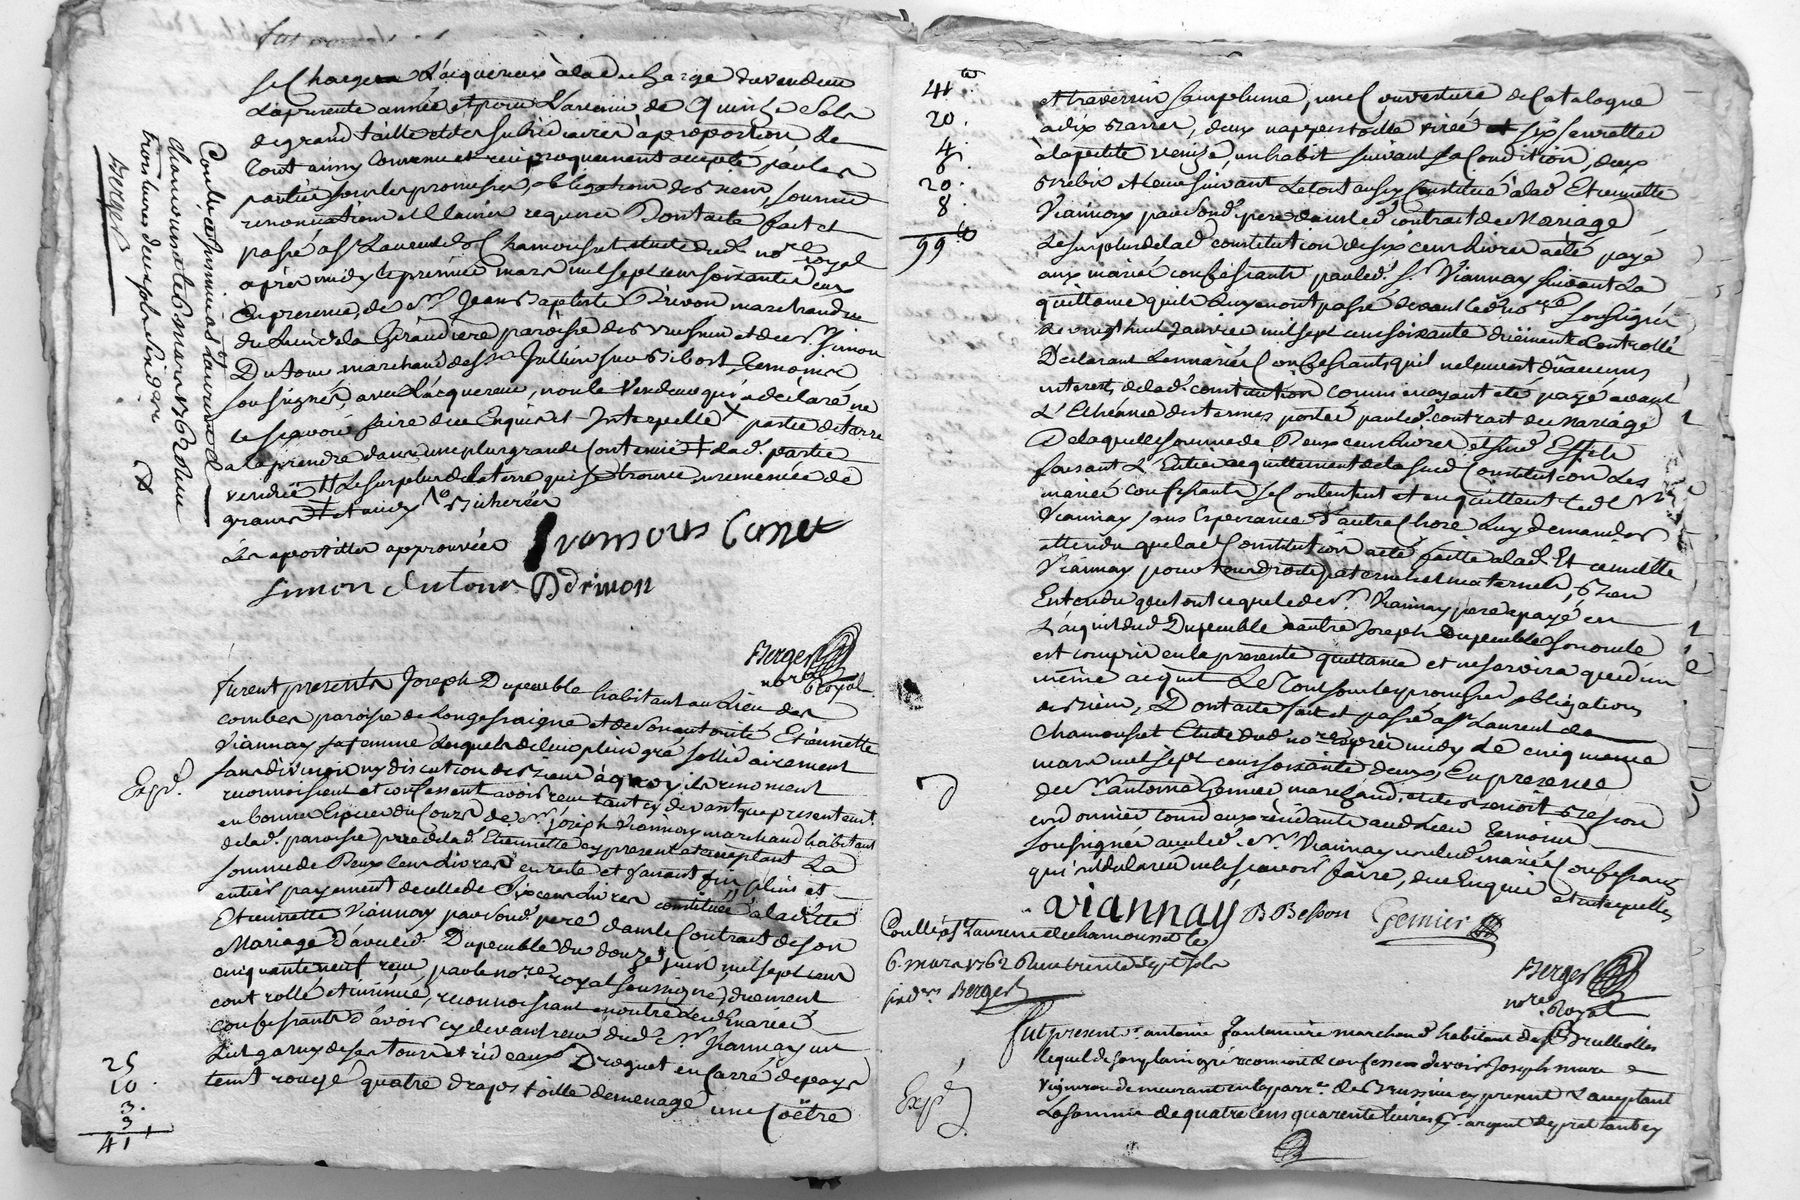 se Chargera L'acquereur à la decharge du vendeur
la presente année et pour L'avenir de quinze Sols
de grand taille et des subsidiaires à proportion Le
tout ainsy Convenu et reciproquement accepté par les
parties sous les promesses obligations des biens, soumis
renonciation et Clauses requises Dont acte fait et
passé a St Laurent de Chamousset etude dud. no.re royal
après midy le premier mars mil sept cens soixante deux
En presence de Sr Jean Baptiste Drivon marchand
du Lieu de la Giraudiere paroisse de et de Sr Simon
Dutour marchand de St Jullien sur Bibost temoins
sousignés avec L'acquereur, non le Vendeur qui a déclaré ne
le sçavoir faire de ce Enquis et Interpellé X partie de terre
a la prendre dans une plus grande Contenue ‡ lad. partie
vendüe Le surplus de la terre qui se trouve de
Les apostilles approuvées francois
Simon dutour B drivon
Berger
no.re Royal
Conllé à St Laurent de
chamousset le mars 1762 Reçu
trois livres deux sols six den.
Berger
furent presents Joseph Dupeuble habitant au Lieu des
combes paroisse de Longessaigne et de son autorité Etiennette
Viannay sa femme Lesquels de leur plein gré sollidairement
sans division ny discution de biens à quoy ils renoncent
reconnoissent et confessent avoir reçu tant cy devant que presentemt.
en bonnes Especes du Cours de Sr Joseph Viannay marchand habitant
delad. paroisse pere delad. Etiennette cy present et acceptant La
somme de Deux Cens Livres en reste et faisant fin plein et
entier payement de celle de Six cens livres constituée a lad.ite
Etiennette Viannay par sond. pere dans le Contrat de son
Mariage d'avec led. Dupeuble du douze juin mil sept cens
cinquante neuf reçu par le no.re royal soussigné, düement
controllé et insinué, reconnoissant en outre lesd. mariés
confessants d'avoir cy devant reçu dud. Sr Viannay un
Lit garny de ses tours et rideaux Droguet en Carré de pays
teint rouge quatre draps toille de menage une Coëtre
Expd.
25
10.
3.
3
41
44 tt
20.
4.
20.
8.
99 tt
et traversin sans plume, une Couverture de Catalogne
à dix barres, deux nappes toille et six serviettes
à la petite venise, un habit suivant sa Condition, deux
brebis et leur suivant Le tout aussy Constitué à lad. Etiennette
Viannay par sond. pere dans led. contrat de Mariage
Le surplus de lad. constitution de six cens livres a eté payé
aux mariés confessants par led. Sr Viannay suivant La
quittance qu'ils Luy en ont passé devant led. no.re soussigné
le vingt huit janvier mil sept cens soixante düement Controllé
Declarant Les mariés Confessants qu'il ne leur est dû aucuns
interets de lad. constitution Comme ayant eté payé avant
L'Echéance des termes portés par led. contrat de Mariage
De laquelle somme de Deux cens livres et sus. Effets
faisant L'Entier acquittement de la susd. Constitution Les
mariés confessants se Contentent et en quittent led. Sr
Viannay sans Esperance d'autre Chose Luy demander
attendu que la Constitution a eté faitte a lad. Etiennette
Viannay pour tous droits paternels et maternels, bien
Entendu que tout ce que led. Sr Viannay pere a payé en
L'acquit dud. Dupeuble à autre Joseph Dupeuble son oncle
est compris en la presente quittance et ne servira que d'un
même acquit Le Tout sous les promesses obligations
de biens, Dont acte fait et passé a St Laurent de
Chamousset Etude dud. no.re après midy Le cinquieme
mars mil sept cens soixante deux, En presence
de Sr antoine Gernier marchand, et de Benoit Besson
cordonnier tous deux residants aud. Lieu temoins
soussignés avec led. Sr Viannay non led. mariés Confessants
qui ont declaré ne le sçavoir faire, de ce Enquis et interpellés
viannay B Besson Gernier
Conllé à St Laurent de chamousset le
6. mars 1762 Reçu trente sept sols
six drs Berger
Berger
no.re Royal
fut present Sr antoine marchand habitant de St Brullioles
lequel de son plain gré reconnoit et confesse devoir à Joseph mure
vigneron demeurant en la parr.e de Brussieu cy present L'acceptant
La somme de quatre cens quarente livres argent de pret
Expé